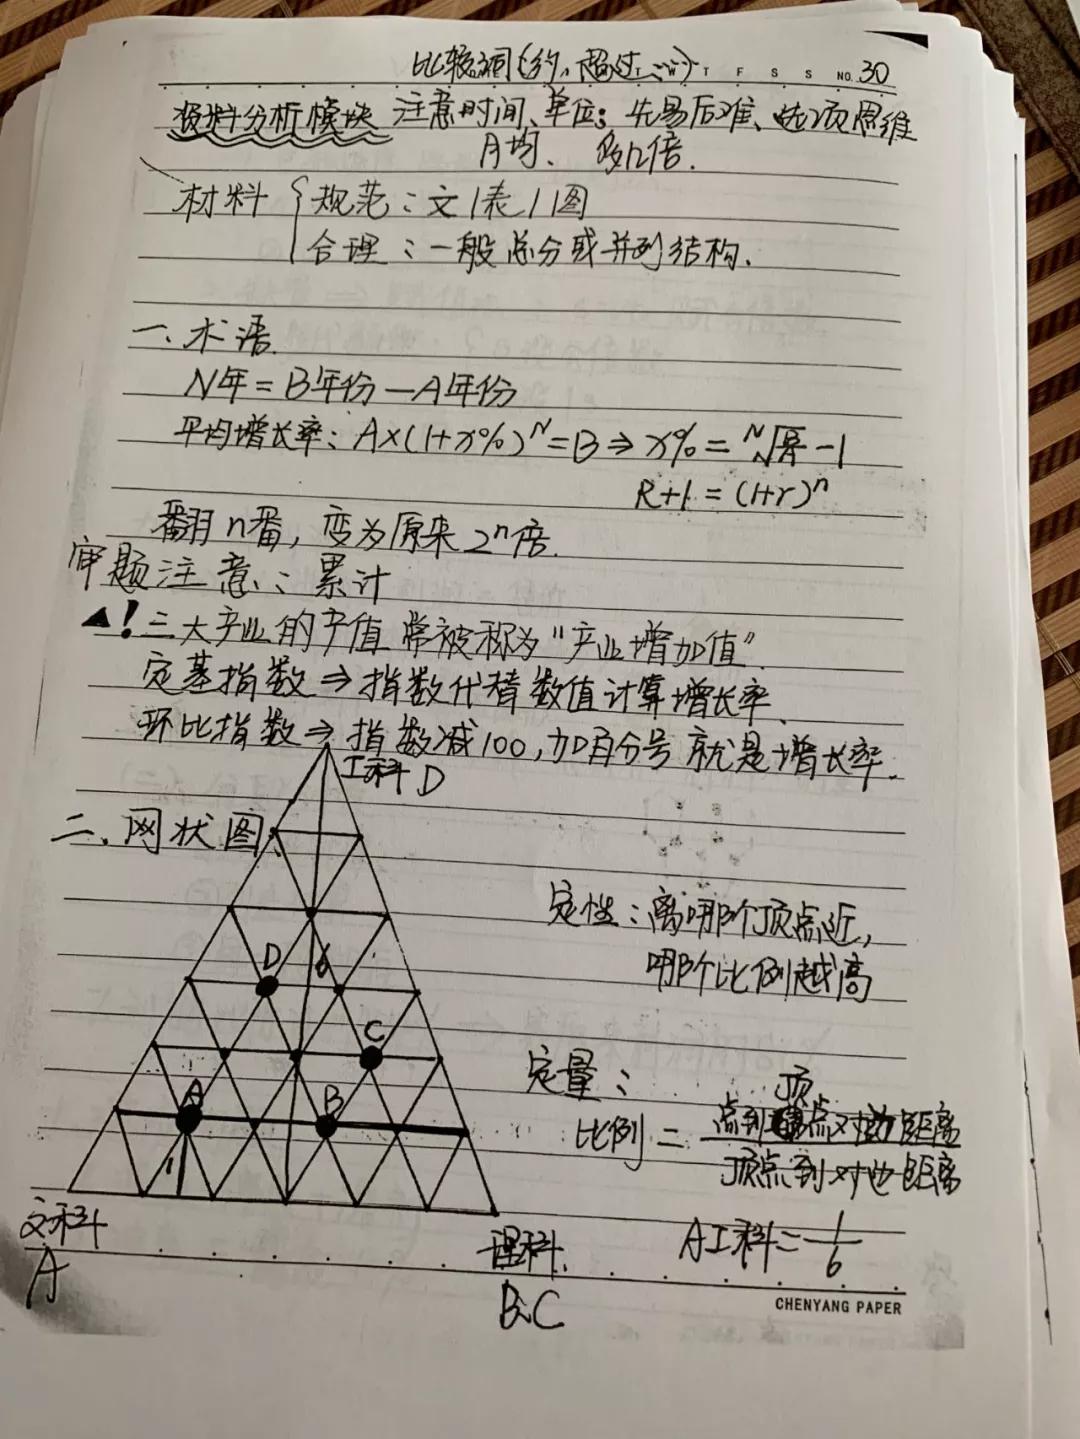 比较词(约、超过……)
T W T F S S NO. 30
资料分析模块 注意时间、单位；先易后难、选项思维
A均、 多n倍.
材料 { 规范：文/表/图
合理：一般总分或并列结构.
一、术语.
N年=B年份-A年份
平均增长率：A×(1+x%)^N=B⇒x%=ᴺ√(B/A)-1
R+1=(1+r)^n
翻n番，变为原来2^n倍.
审题注意：累计
▲!三大产业的产值常被称为"产业增加值".
定基指数⇒指数代替数值计算增长率.
环比指数⇒指数减100,加百分号就是增长率.
工科D
二、网状图
定性：离哪个顶点近，
哪个比例越高
D 6
C
定量：
顶
比例=点到 点对边距离
顶点到对边距离
A
B
1
文科
理科.
A工科=1/6
A
B、C
CHENYANG PAPER